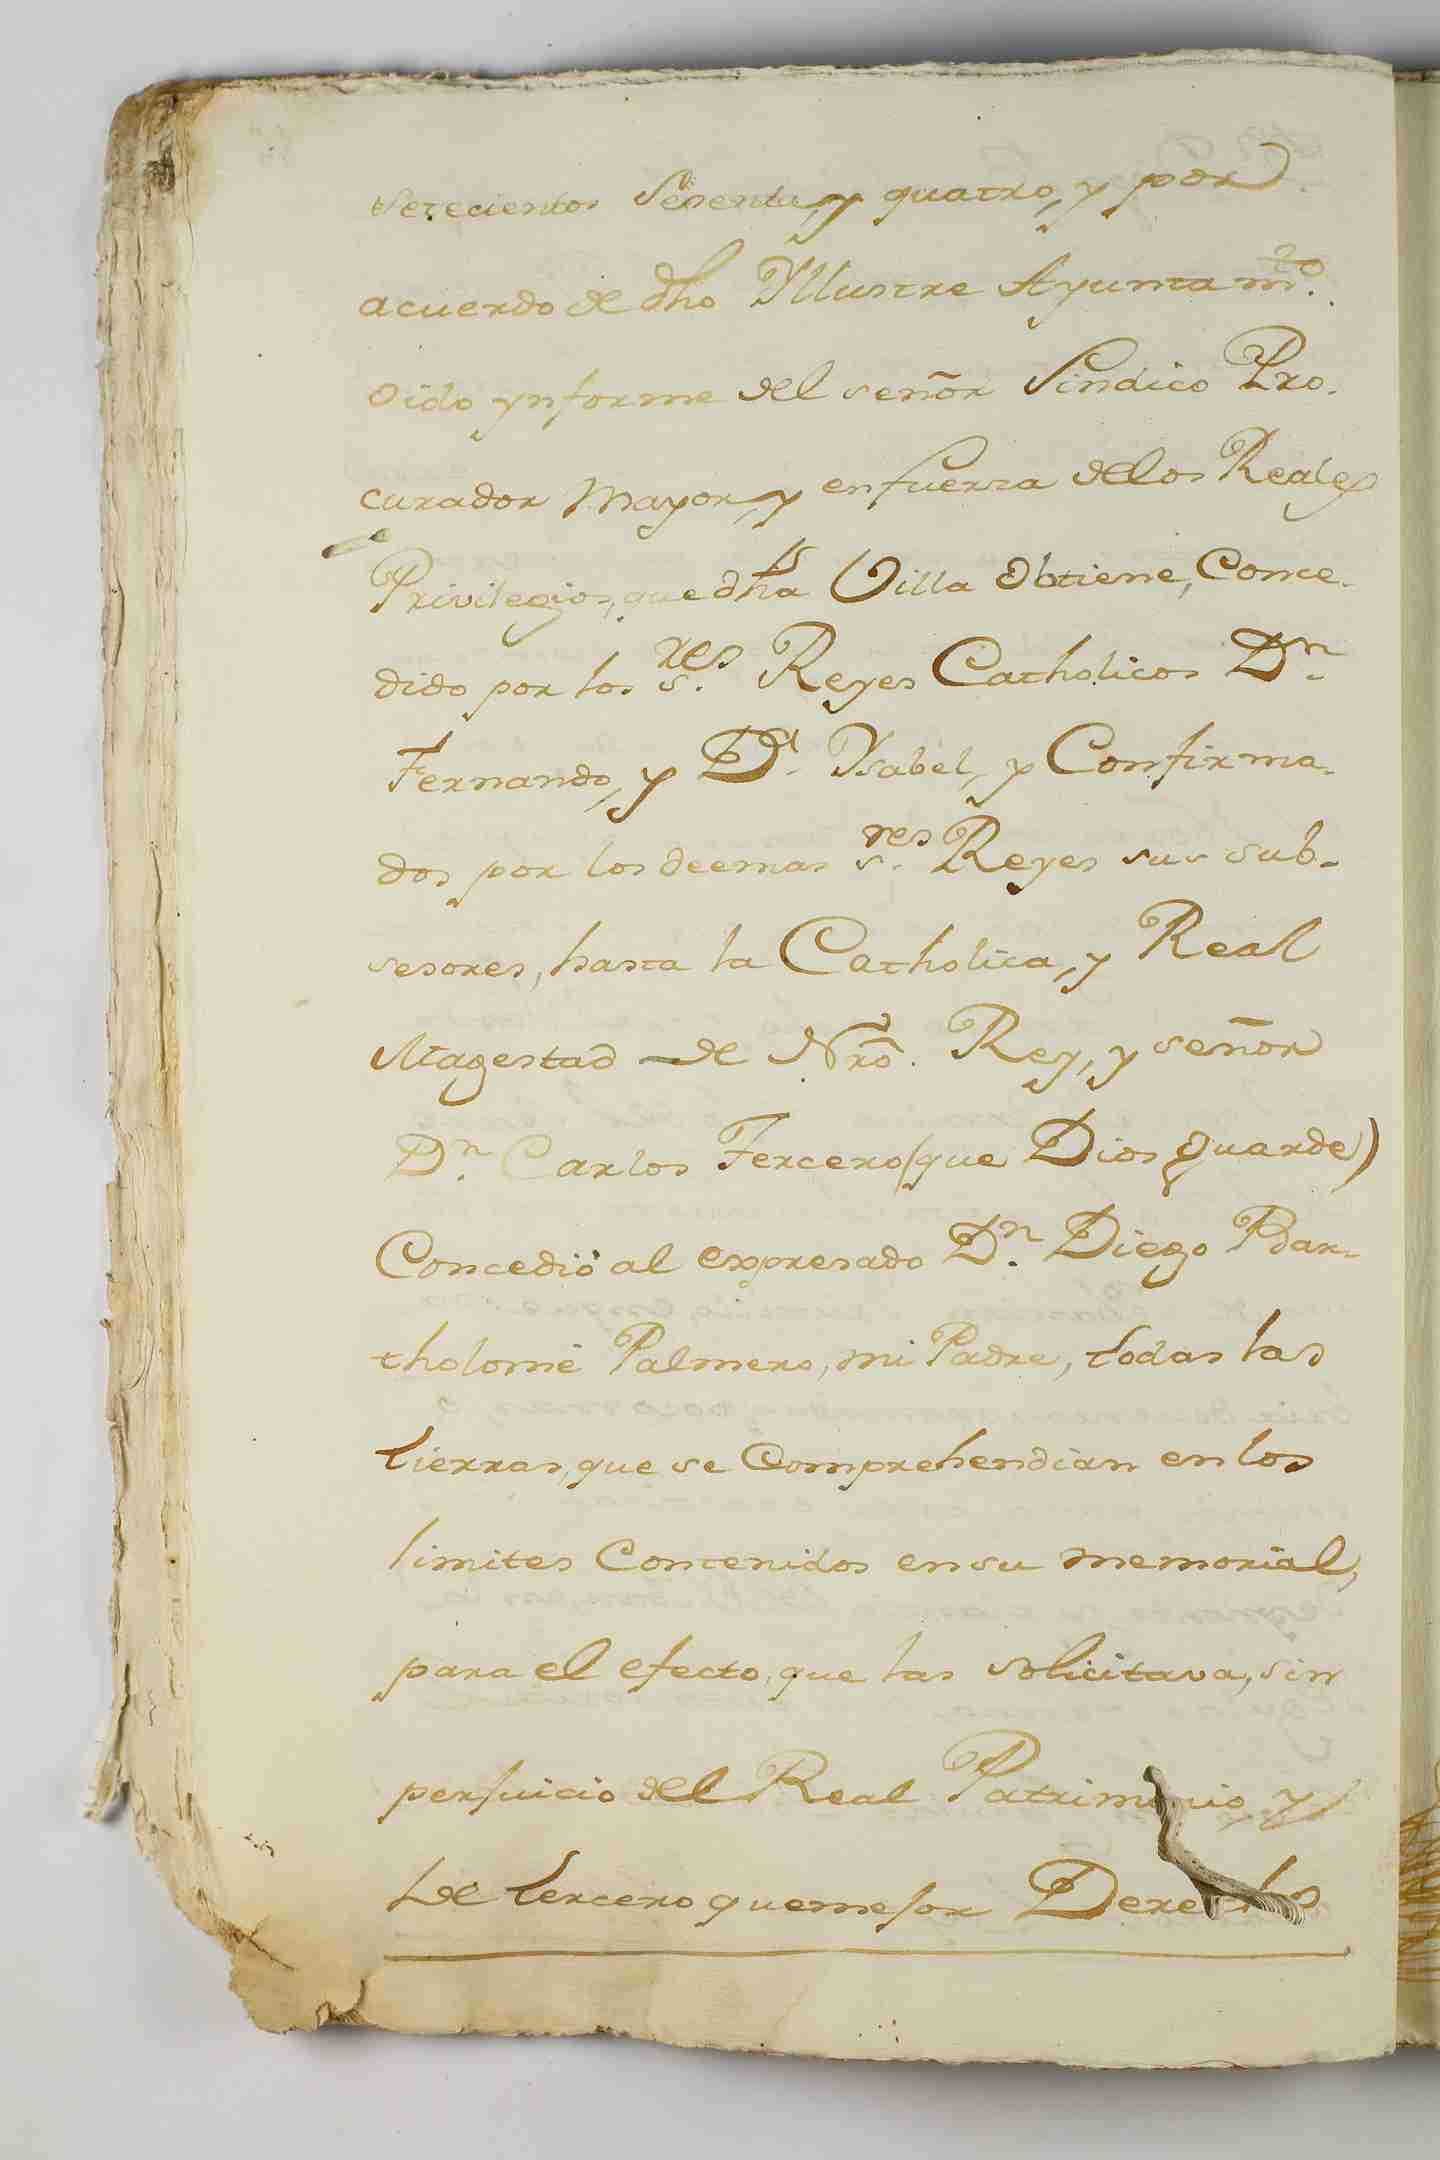 setecientos sesenta, y quatro, y por
acuerdo de dho Yllustre Ayuntamto.
oido ynforme del señor Sindico Pro-
curador Mayor, y en fuerza de los Reales
Privilegios, que dha Villa Obtiene, Conce-
dido por los sres. Reyes Catholicos Dn.
Fernando, y Da. Ysabel, y Confirma-
dos por los deemas sres. Reyes sus sub-
sesores, hasta la Catholica, y Real
Magestad de Nrõ. Rey, y señor
Dn. Carlos Tercero (que Dios Guarde)
Concedió al expresado Dn. Diego Bar-
tholomé Palmero, mi Padre, todas las
tierras, que se Comprehendian en los
limites Contenidos en su memorial,
para el efecto, que las solicitava, sin
perjuicio del Real Patrimonio, y
de tercero que mejor Derecho